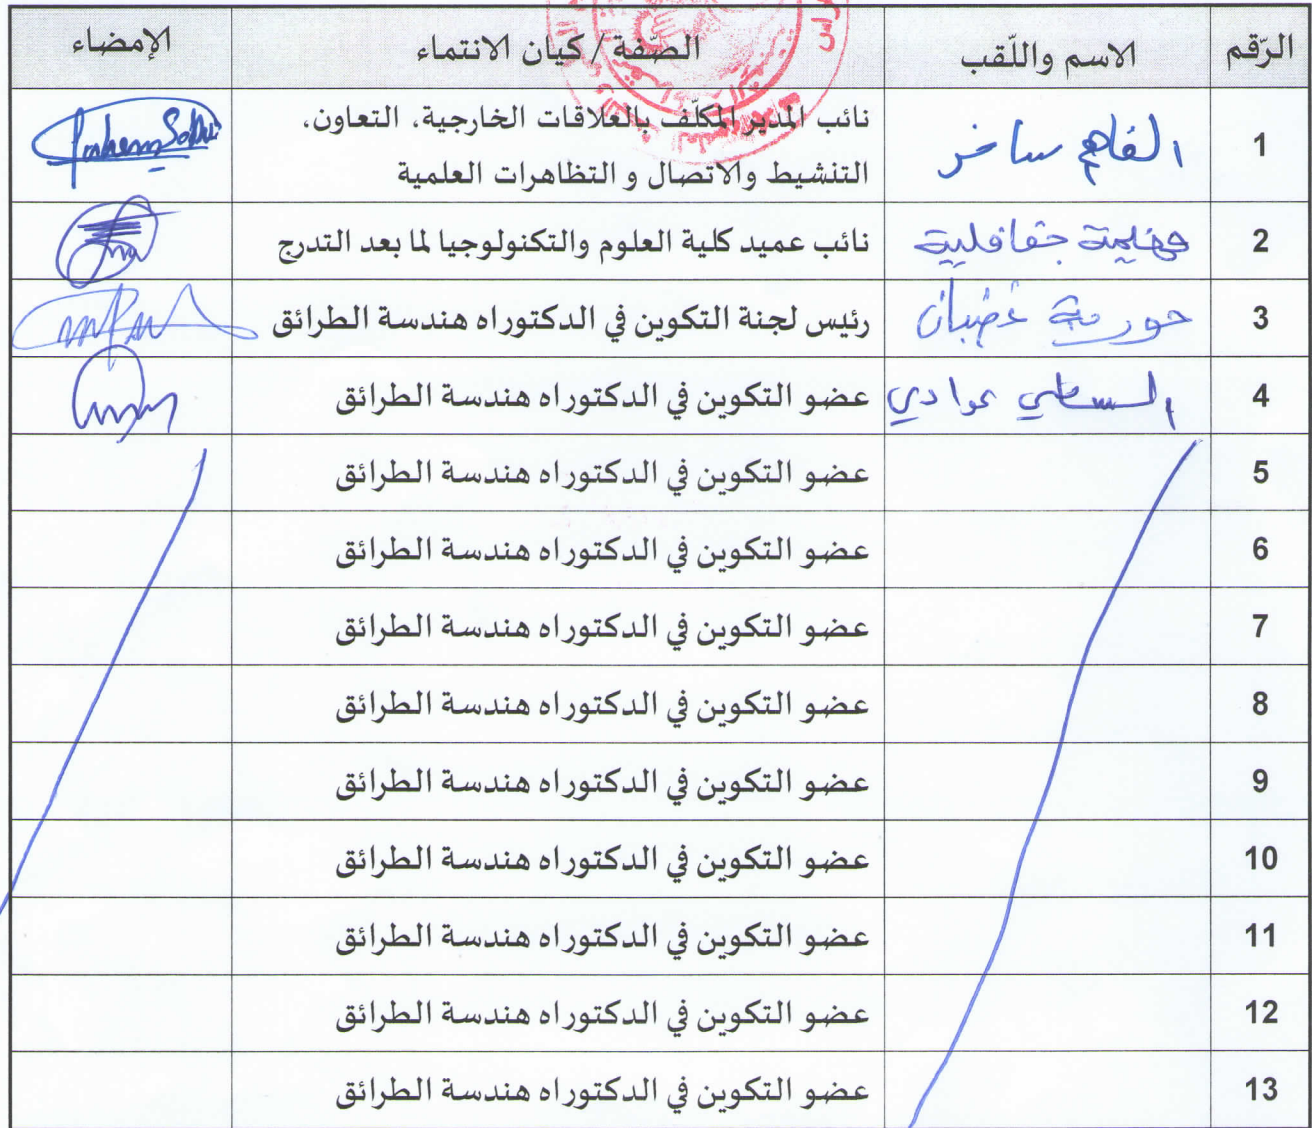 الرّقم الاسم واللّقب الصّفة / كيان الانتماء الإمضاء
1 الفاهم ساخر نائب المدير المكلّف بالعلاقات الخارجية، التعاون،
التنشيط والاتصال و التظاهرات العلمية
2 نائب عميد كلية العلوم والتكنولوجيا لما بعد التدرج
3 حورية غضبان رئيس لجنة التكوين في الدكتوراه هندسة الطرائق
4 عوادي عضو التكوين في الدكتوراه هندسة الطرائق
5 عضو التكوين في الدكتوراه هندسة الطرائق
6 عضو التكوين في الدكتوراه هندسة الطرائق
7 عضو التكوين في الدكتوراه هندسة الطرائق
8 عضو التكوين في الدكتوراه هندسة الطرائق
9 عضو التكوين في الدكتوراه هندسة الطرائق
10 عضو التكوين في الدكتوراه هندسة الطرائق
11 عضو التكوين في الدكتوراه هندسة الطرائق
12 عضو التكوين في الدكتوراه هندسة الطرائق
13 عضو التكوين في الدكتوراه هندسة الطرائق